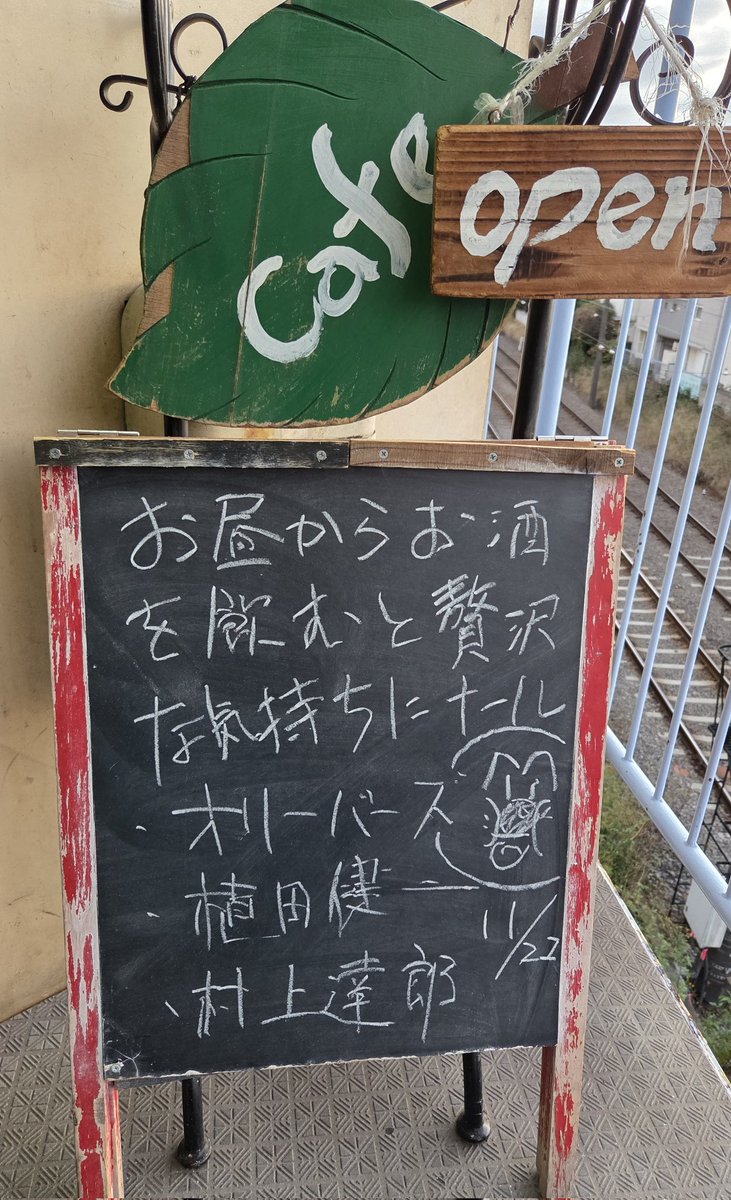 Cafe
open
お昼からお酒
を飲むと贅沢
な気持ちにナール
・オリーバーズ
・植田健一
11/22
・村上達郎